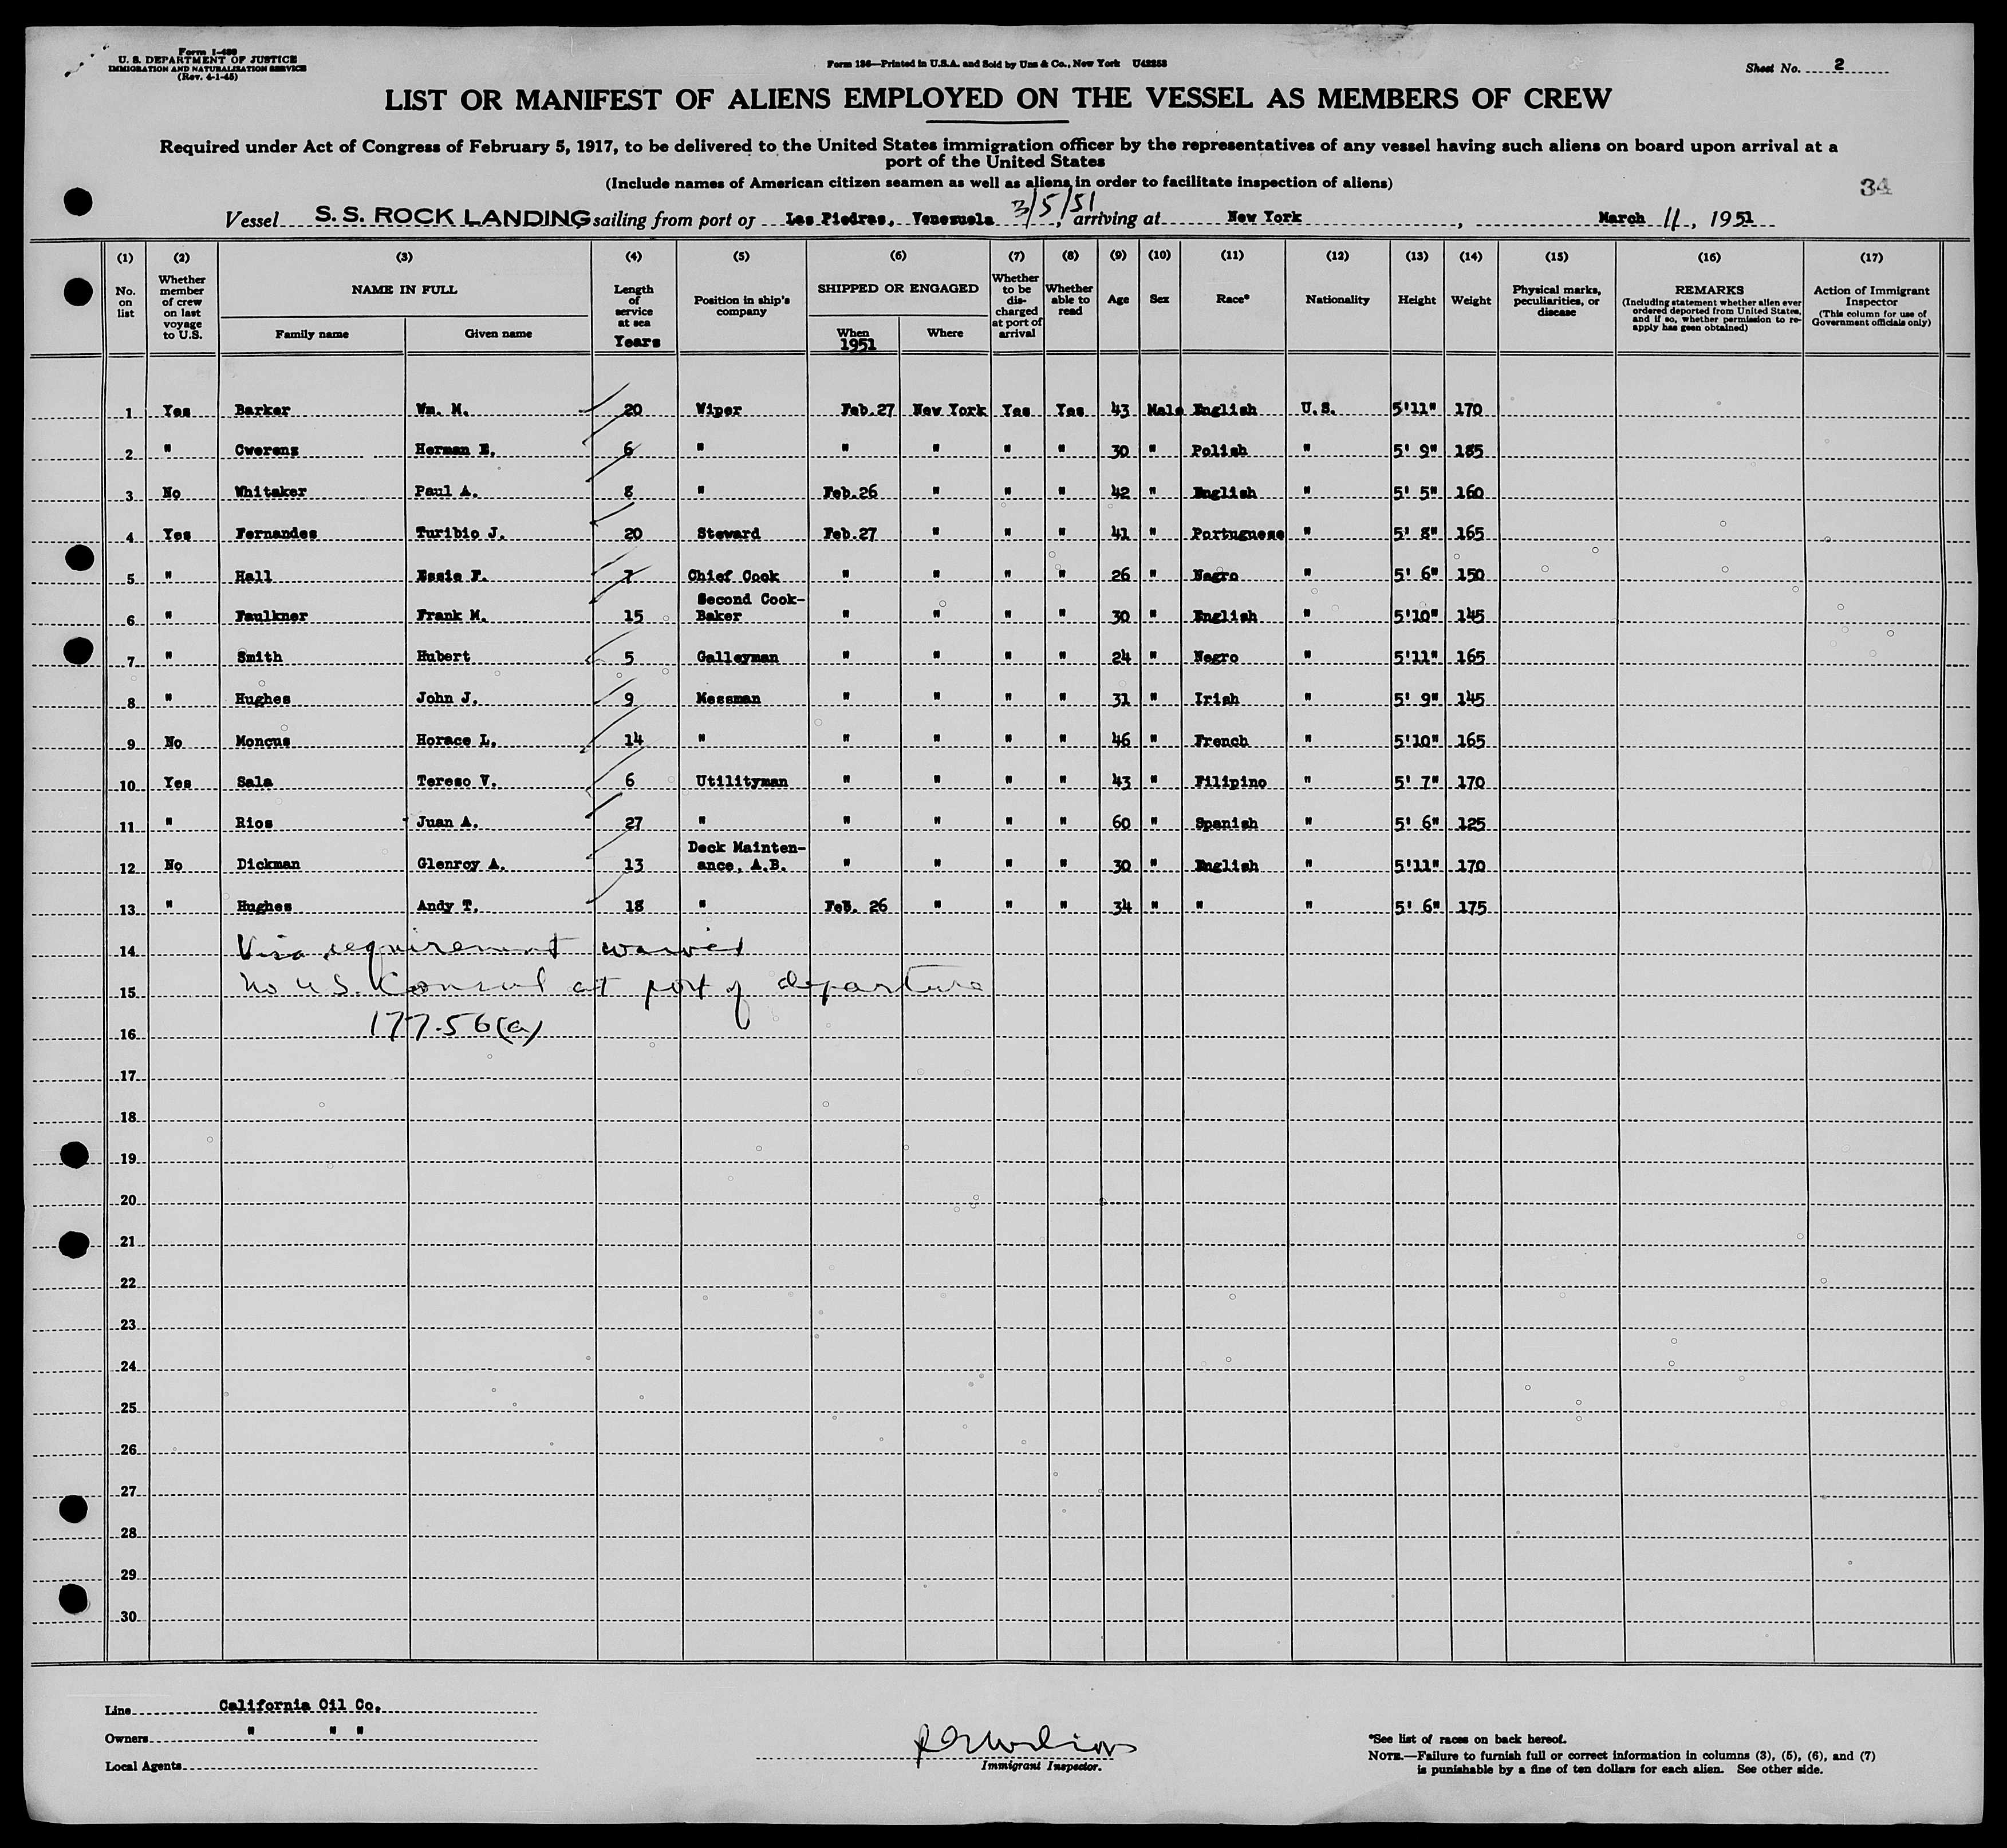 Form I-480
U. S. DEPARTMENT OF JUSTICE
IMMIGRATION AND NATURALIZATION SERVICE
(Rev. 4-1-45)
Form 136—Printed in U.S.A. and Sold by Unz & Co., New York U42253
Sheet No. 2
LIST OR MANIFEST OF ALIENS EMPLOYED ON THE VESSEL AS MEMBERS OF CREW
Required under Act of Congress of February 5, 1917, to be delivered to the United States immigration officer by the representatives of any vessel having such aliens on board upon arrival at a
port of the United States
(Include names of American citizen seamen as well as aliens in order to facilitate inspection of aliens)
34
Vessel S. S. ROCK LANDING sailing from port of Las Piedras, Venezuela 3/5/51, arriving at New York, March 11, 1951
(1) (2) (3) (4) (5) (6) (7) (8) (9) (10) (11) (12) (13) (14) (15) (16) (17)
No. on list
Whether member of crew on last voyage to U.S.
NAME IN FULL
Family name
Given name
Length of service at sea
Years
Position in ship's company
SHIPPED OR ENGAGED
When
1951
Where
Whether to be dis-charged at port of arrival
Whether able to read
Age
Sex
Race*
Nationality
Height
Weight
Physical marks, peculiarities, or disease
REMARKS
(Including statement whether alien ever ordered deported from United States, and if so, whether permission to re-apply has been obtained)
Action of Immigrant Inspector
(This column for use of Government officials only)
1 Yes Barker Wm. M. 20 Wiper Feb.27 New York Yes Yes 43 Male English U.S. 5'11" 170
2 " Cwerenz Herman E. 6 " " " " " 30 " Polish " 5' 9" 185
3 No Whitaker Paul A. 8 " Feb.26 " " " 42 " English " 5' 5" 160
4 Yes Fernandes Turibio J. 20 Steward Feb.27 " " " 41 " Portuguese " 5' 8" 165
5 " Hall Essie F. 7 Chief Cook " " " " 26 " Negro " 5' 6" 150
Second Cook-
6 " Faulkner Frank M. 15 Baker " " " " 30 " English " 5'10" 145
7 " Smith Hubert 5 Galleyman " " " " 24 " Negro " 5'11" 165
8 " Hughes John J. 9 Messman " " " " 31 " Irish " 5' 9" 145
9 No Moncus Horace L. 14 " " " " " 46 " French " 5'10" 165
10 Yes Sala Tereso V. 6 Utilityman " " " " 43 " Filipino " 5' 7" 170
11 " Rios Juan A. 27 " " " " " 60 " Spanish " 5' 6" 125
Deck Mainten-
12 No Dickman Glenroy A. 13 ance, A.B. " " " " 30 " English " 5'11" 170
13 " Hughes Andy T. 18 " Feb. 26 " " " 34 " " " 5' 6" 175
14 Visa requirement waived
15 No U.S. Consul at port of departure
16 177.56(a)
17
18
19
20
21
22
23
24
25
26
27
28
29
30
Line California Oil Co.
Owners " " "
Local Agents
Immigrant Inspector.
*See list of races on back hereof.
NOTE.—Failure to furnish full or correct information in columns (3), (5), (6), and (7)
is punishable by a fine of ten dollars for each alien. See other side.